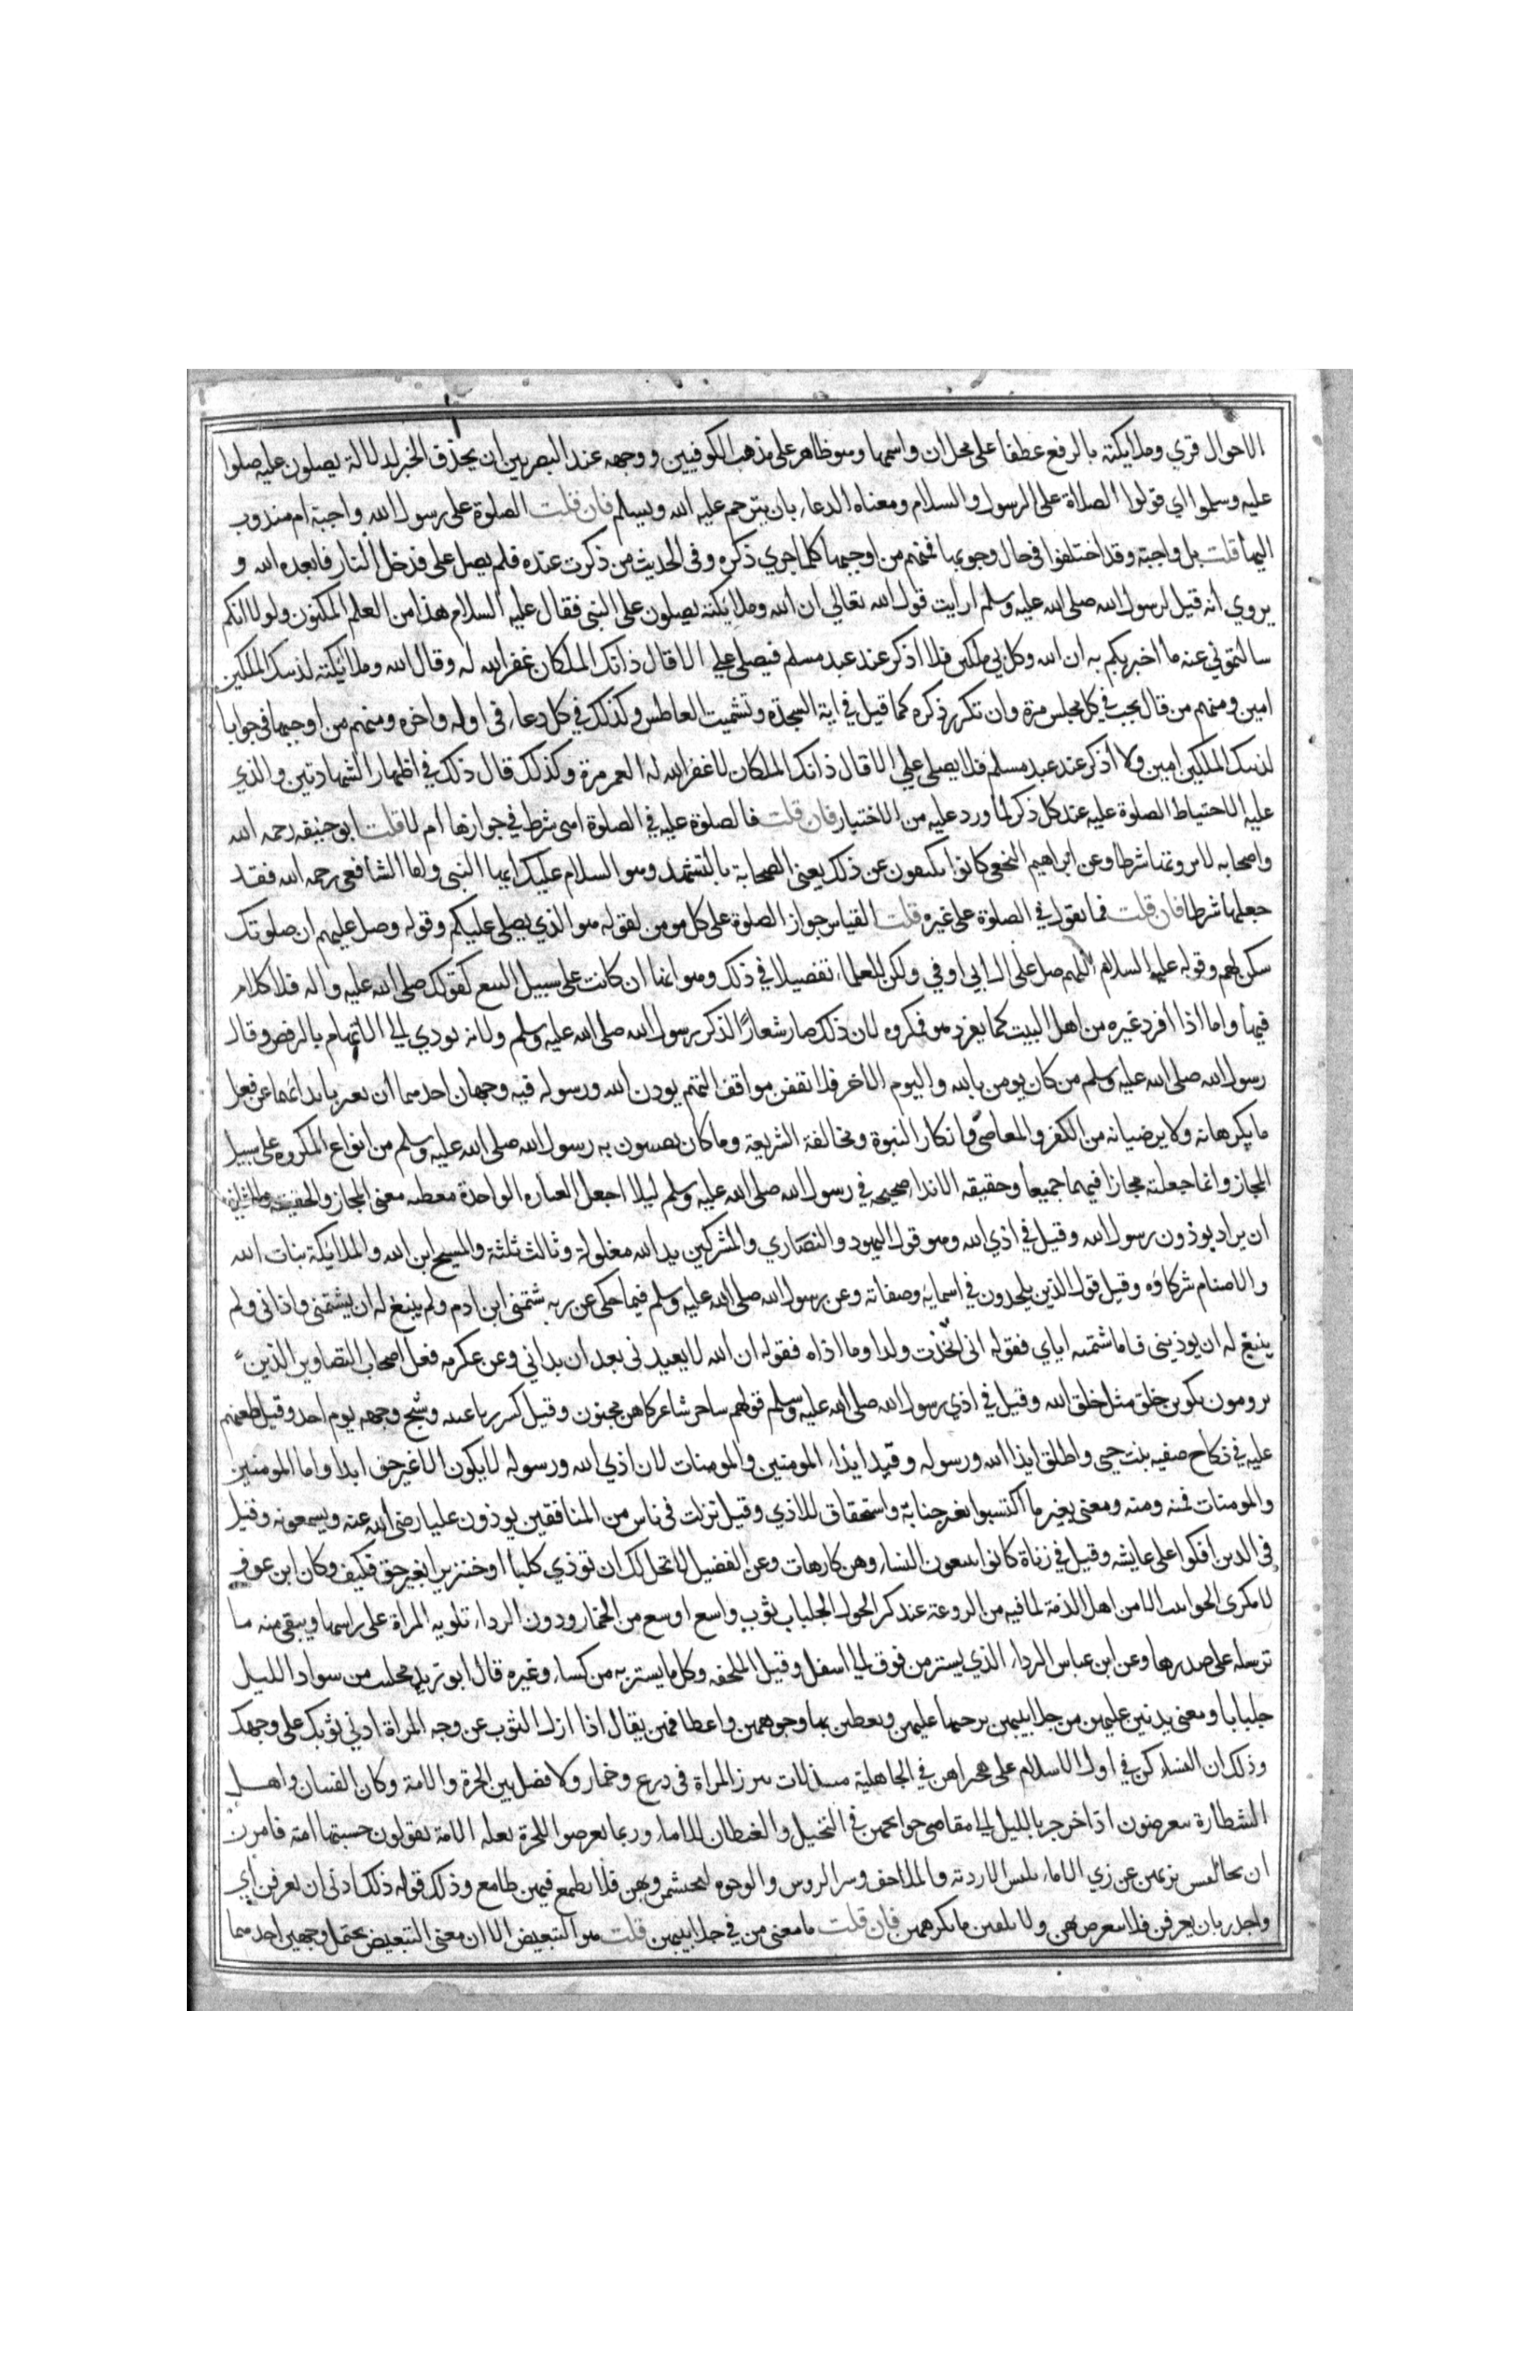 الاحوال قري وملايكته بالرفع عطفا على محل ان واسمها وهو ظاهر على مذهب الكوفيين ووجهه عند البصريين ان يحذف الخبر لدلالة يصلون عليه صلوا
عليه وسلموا اي قولوا الصلاة على الرسول والسلام ومعناه الدعاء بان يترحم عليه الله ويسلم فان قلت الصلوة على رسول الله واجبة ام مندوب
اليها قلت بل واجبة وقد اختلفوا في حال وجوبها فمنهم من اوجبها كلما جري ذكره وفي الحديث من ذكرت عنده فلم يصل على فدخل النار فابعده الله و
يروي انه قيل لرسول الله صلى الله عليه وسلم ارايت قول الله تعالي ان الله وملائكته يصلون على النبي فقال عليه السلام هذا من العلم المكنون ولولا انكم
سالتموني عنه ما اخبرتكم به ان الله وكل بي ملكين فلا اذكر عند عبد مسلم فيصلي علي الا قال ذانك الملكان غفر الله له وقال الله وملائكته لذينك الملكين
امين ومنهم من قال يجب في كل مجلس مرة وان تكرر ذكره كما قيل في اية السجدة وتشميت العاطس وكذلك في كل دعاء في اوله واخره ومنهم من اوجبها في جوابا
لذينك الملكين امين ولا اذكر عند عبد مسلم فلا يصلي علي الا قال ذانك الملكان لا غفر الله له العمر مرة وكذلك قال ذلك في اظهار الشهادتين والذي
عليه الاحتياط الصلوة عليه عند كل ذكر لما ورد عليه من الاخبار فان قلت فالصلوة عليه في الصلوة اهي شرط في جوازها ام لا قلت ابو حنيفه رحمه الله
واصحابه لا يرونها شرطا وعن ابراهيم النخعي كانوا يكتفون عن ذلك يعني الصحابة بالتشهد وهو السلام عليك ايها النبي واما الشافعي رحمه الله فقد
جعلها شرطا فان قلت فما تقول في الصلوة على غيره قلت القياس جواز الصلوة على كل مومن لقوله هو الذي يصلي عليكم وقوله وصل عليهم ان صلوتك
سكن لهم وقوله عليه السلام اللهم صل على ال ابي اوفي ولكن للعلماء تفصيلا في ذلك وهو انها ان كانت على سبيل التبع كقولك صلى الله عليه واله فلا كلام
فيها واما اذا افرد غيره من اهل البيت كما يفرد هو فمكروه لان ذلك صار شعارا لذكر رسول الله صلى الله عليه وسلم ولانه يودي الي الاتهام بالرفض وقال
رسول الله صلى الله عليه وسلم من كان يومن بالله واليوم الاخر فلا تقفن مواقف التهم يوذون الله ورسوله فيه وجهان احدهما ان يعبر بايذائهما عن فعل
ما يكرهانه ولا يرضيانه من الكفر والمعاصي وانكار النبوة ومخالفة الشريعة وما كان يصيبون به رسول الله صلى الله عليه وسلم من انواع المكروه على سبيل
المجاز وانما جعلته مجازا فيهما جميعا وحقيقه الايذاء صحيحه في رسول الله صلى الله عليه وسلم ليلا اجعل العباره الواحدة معطيه معنى المجاز والحقيقه والثاني
ان يراد يوذون رسول الله وقيل في اذي الله وهو قول اليهود والنصاري والمشركين يد الله مغلولة وثالث ثلثة والمسيح ابن الله والملائكة بنات الله
والاصنام شركاؤه وقيل قول الذين يلحدون في اسمايه وصفاته وعن رسول الله صلى الله عليه وسلم فيما حكى عن ربه شتمني ابن ادم ولم ينبغ له ان يشتمني واذاني ولم
ينبغ له ان يوذيني فاما شتمه اياي فقوله اني اتخذت ولدا وما اذاه فقوله ان الله لا يعيدني بعد ان بداني وعن عكرمه فعل اصحاب التصاوير الذين
يرومون تكوين خلق مثل خلق الله وقيل في اذي رسول الله صلى الله عليه وسلم قولهم ساحر شاعر كاهن مجنون وقيل كسر رباعيته وشج وجهه يوم احد وقيل طعنهم
عليه في نكاح صفيه بنت حيى واطلق ايذا الله ورسوله وقيد ايذاء المومنين والمومنات لان اذي الله ورسوله لا يكون الا غير حق ابدا واما المومنين
والمومنات فمنه ومنه ومعنى بغير ما اكتسبوا بغير جناية واستحقاق للاذي وقيل نزلت في ناس من المنافقين يوذون عليا رضى الله عنه ويسمعونه وقيل
في الذين افكوا على عايشه وقيل في زناة كانوا يتبعون النساء وهن كارهات وعن الفضيل لا تحل لك ان توذي كلبا او خنزيرا بغير حق فكيف وكان ابن عوف
لا يكري الحوانيت الا من اهل الذمة لما فيه من الروعة عند كر الحول الجلباب ثوب واسع اوسع من الخمار ودون الرداء تلويه المراة على راسها ويبقي منه ما
ترسله على صدرها وعن ابن عباس الرداء الذي يستر من فوق الي اسفل وقيل الملحفه وكل ما يستر به من كساء وغيره قال ابو زيد مجلبب من سواد الليل
جلبابا ومعنى يدنين عليهن من جلابيبهن يرخينها عليهن ويغطين بها وجوههن واعطافهن يقال اذا زل الثوب عن وجه المراة ادني ثوبك على وجهك
وذلك ان النساء كن في اول الاسلام على هجراهن في الجاهلية متبذلات تبرز المراة في درع وخمار ولا فضل بين الحرة والامة وكان الفتيان واهل
الشطارة يتعرضون اذا خرجن بالليل الي مقاضي حوايجهن في النخيل والغيطان للاماء وربما يعرضوا للحرة بعله الامة يقولون حسبتها امة فامرن
ان يخالفن بزيهن عن زي الاماء بلبس الاردية والملاحف وستر الروس والوجوه ليحتشمن ويهبن فلا يطمع فيهن طامع وذلك قوله ذلك ادنى ان يعرفن اي
واجدر بان يعرفن فلا يتعرض لهن ولا يلقين ما يكرههن فان قلت ما معنى من في جلابيبهن قلت هو التبعيض الا ان معنى التبعيض يحتمل وجهين احدهما